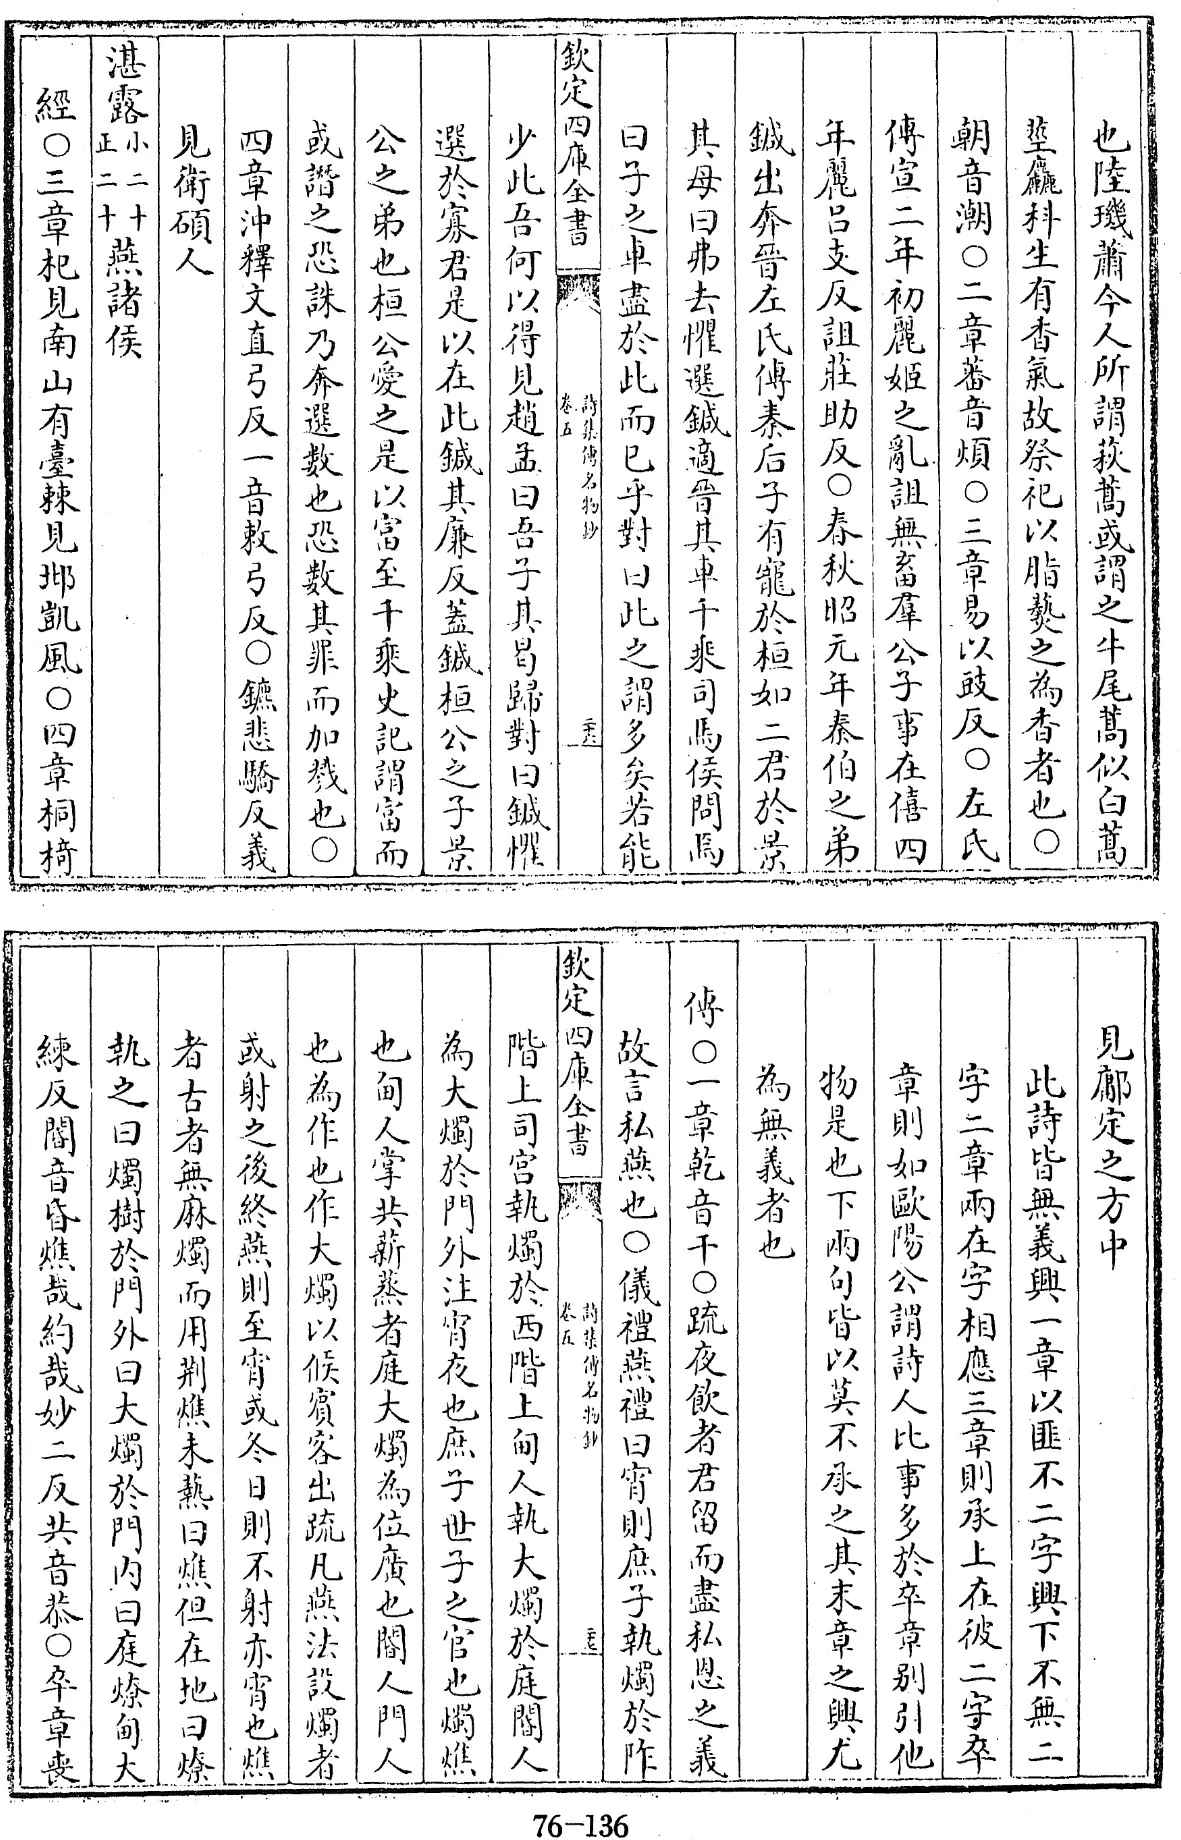 也陸璣蕭今人所謂萩蒿或謂之牛尾蒿似白蒿
莖麤科生有香氣故祭祀以脂爇之為香者也○
朝音潮○二章蕃音煩○三章易以豉反○左氏
傳宣二年初麗姬之亂詛無畜羣公子事在僖四
年麗呂支反詛莊助反○春秋昭元年秦伯之弟
鍼出奔晉左氏傳秦后子有寵於桓如二君於景
其母曰弗去懼選鍼適晉其車千乘司馬侯問焉
曰子之車盡於此而已乎對曰此之謂多矣若能
欽定四庫全書
詩集傳名物鈔
卷五
少此吾何以得見趙孟曰吾子其曷歸對曰鍼懼
選於寡君是以在此鍼其廉反蓋鍼桓公之子景
公之弟也桓公愛之是以富至千乘史記謂富而
或譖之恐誅乃奔選數也恐數其罪而加戮也○
四章沖釋文直弓反一音敕弓反○鑣悲驕反義
見衛碩人
湛露小二十正二十燕諸侯
經○三章杞見南山有臺棘見邶凱風○四章桐椅
見鄘定之方中
此詩皆無義興一章以匪不二字興下不無二
字二章兩在字相應三章則承上在彼二字卒
章則如歐陽公謂詩人比事多於卒章别引他
物是也下兩句皆以莫不承之其末章之興尤
為無義者也
傳○一章乾音干○疏夜飲者君留而盡私恩之義
故言私燕也○儀禮燕禮曰宵則庶子執燭於阼
欽定四庫全書
詩集傳名物鈔
卷五
階上司宫執燭於西階上甸人執大燭於庭閽人
為大燭於門外注宵夜也庶子世子之官也燭燋
也甸人掌共薪蒸者庭大燭為位廣也閽人門人
也為作也作大燭以候賓客出疏凡燕法設燭者
或射之後終燕則至宵或冬日則不射亦宵也燋
者古者無麻燭而用荆燋未爇曰燋但在地曰燎
執之曰燭樹於門外曰大燭於門内曰庭燎甸大
練反閽音昏燋哉約哉妙二反共音恭○卒章喪
76-136